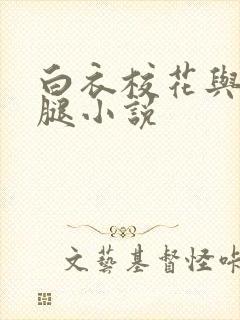 白衣校花與
腿小說
文藝基督怪咔